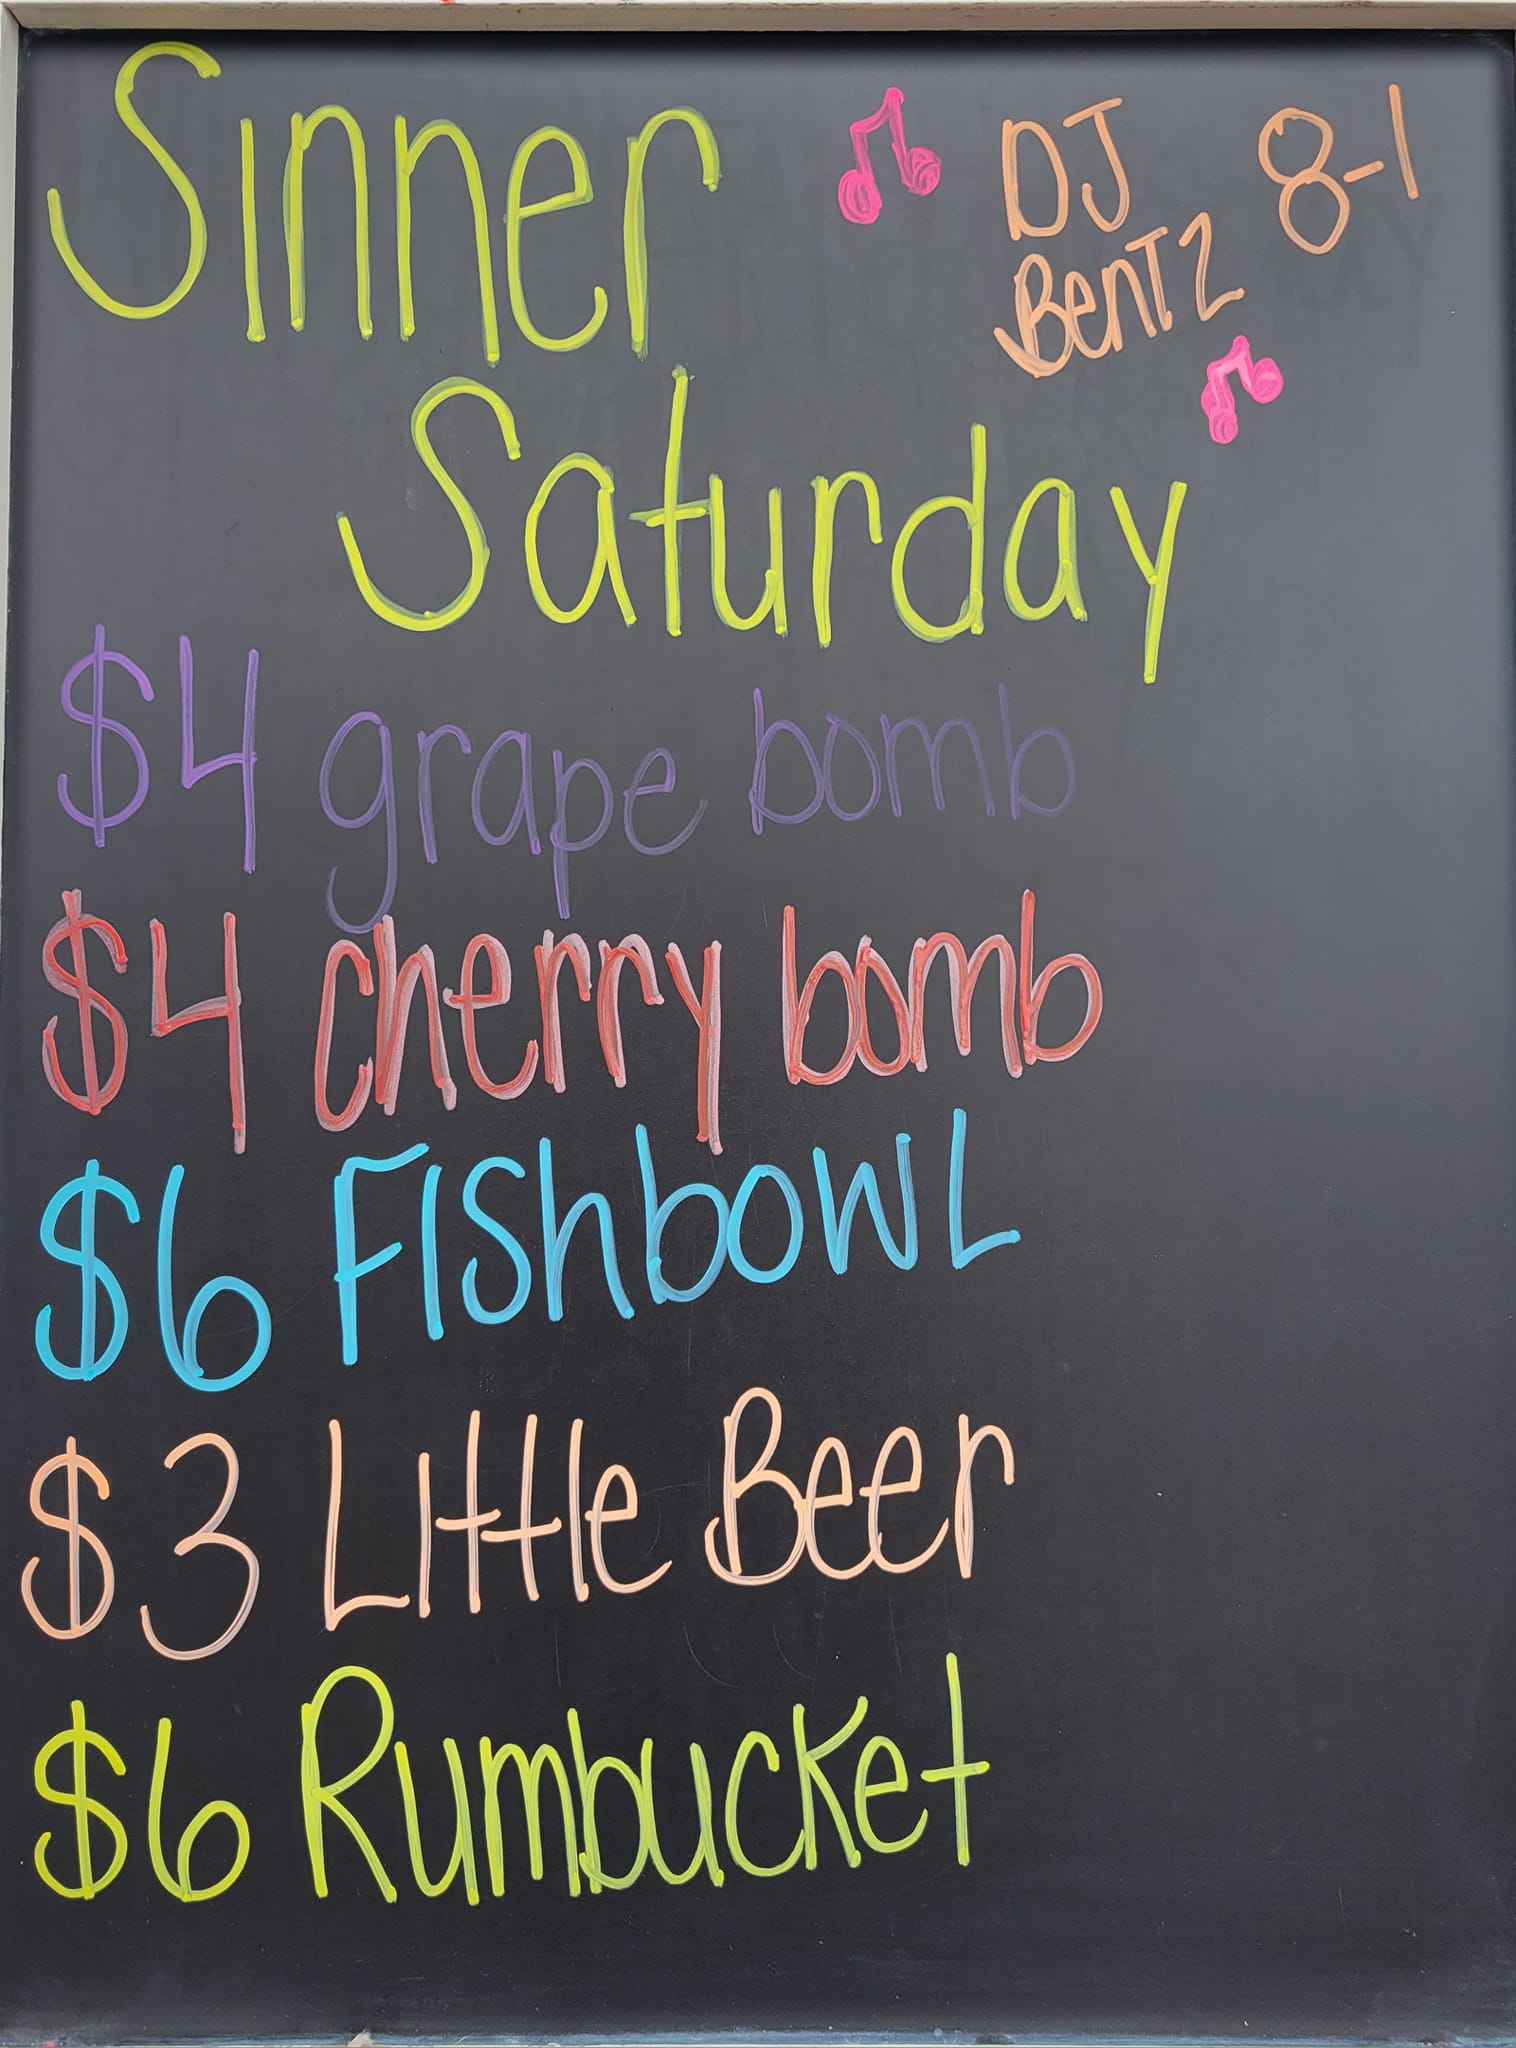 Sinner
DJ 8-1
BenTz
Saturday
$4 grape bomb
$4 cherry bomb
$6 FishbowL
$3 Little Beer
$6 Rumbucket